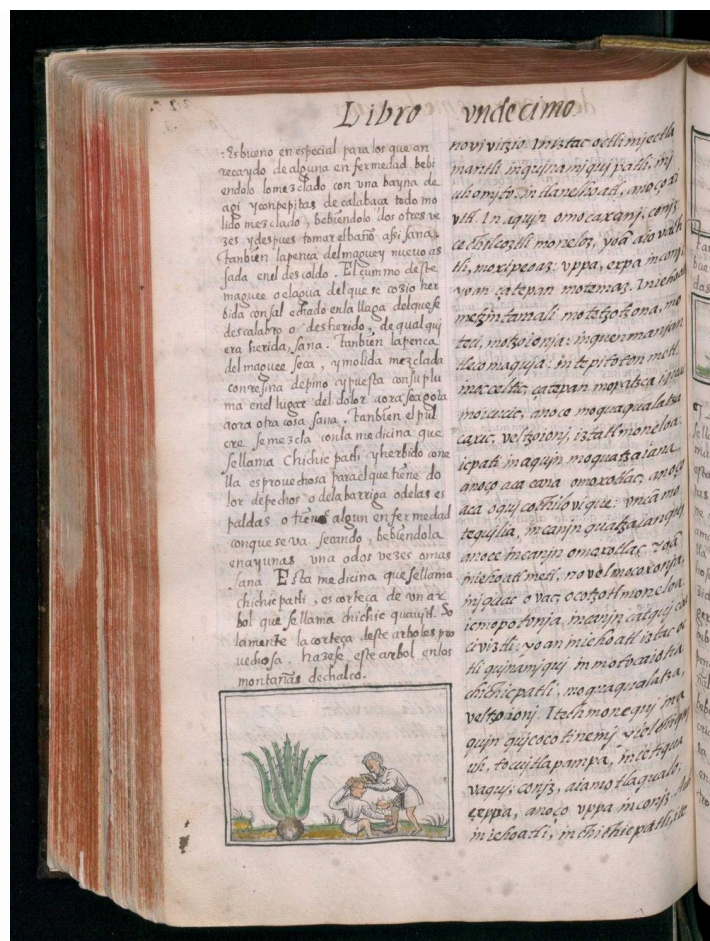 Libro vndecimo
Es bueno en especial para los que an
recaydo de alguna en fermedad. bebi
endolo lo mezclado con vna bayna de
agi y con pepitas de calabaca todo mo
lido mezclado, bebiendolo dos o tres ve
zes y despues tomar el baño assi sana,
tanbien la penca del maguey nueuo as
sada en el descoldo. El çummo deste
maguee o el agua del que se cozio her
bida con sal echado en la llaga del que se
descalabro o desherido, de qual qui
era herida, sana. tanbien la penca
del maguee seca, y molida mezclada
con resina de pino y puesta con su plu
ma en el lugar del dolor aora sea gota
aora otra cosa sana. tanbien el pul
cre se mezcla con la medicina que
se llama chichic patli y herbido con e
lla es prouechosa para el que tiene do
lor de pechos o de la barriga o de las es
paldas o tiene algun en fermedad
con que se va secando, bebiendola
en ayunas vna o dos vezes o mas
sana Esta medicina que se llama
chichic patli, es corteca de vn ar
bol que se llama chichic quauitl. So
lamente la corteça deste arbol es pro
uechosa. hazese este arbol en los
montañas de chalco.
noviuitzio. In iztac octli mjectla
mantli inqujnamiqui patli, inj
In aqujn omocaxanj, conj
ce chilcoztli moneloz, yoã aio
tli, moxipeoaz: vppa, expa inconj
yoan çatepan motemaz.
metzintamali motetzotzona, mo
teci, motzoionja:
tleco maquja: in tepitoton metl.
çatepan mopatzca
moiucxic, anoço moquaqualatza
caxic, veltzoionj, iztatl moneloa
icpati in aqujn moquatzaiana
anoço aca cana omoxotlac, anoço
aca oqujcochilovique: vncã mo
tequilia, in canjn quatzaianquj
anoce in canjn omoxotlac. Yoã
injehoatl metl, no vel mocoxonja
injquac ovac, ocotzotl moneloa
icmopotonja, in canjn catquj co
civiztli: yoan injehoatl iztac oc
tli qujnamjquj in motocaiotia
chichicpatli, moquaqualatza,
veltzoionj. Itech monequj in a
quin quicocotinemj yielchiquj
uh, tocujtlapampa, in cetiquj
vaquj: conjz, aiamo tlaqualo:
ceppa, anoço vppa inconjz. Auh
injehoatl, in chichicpatli,